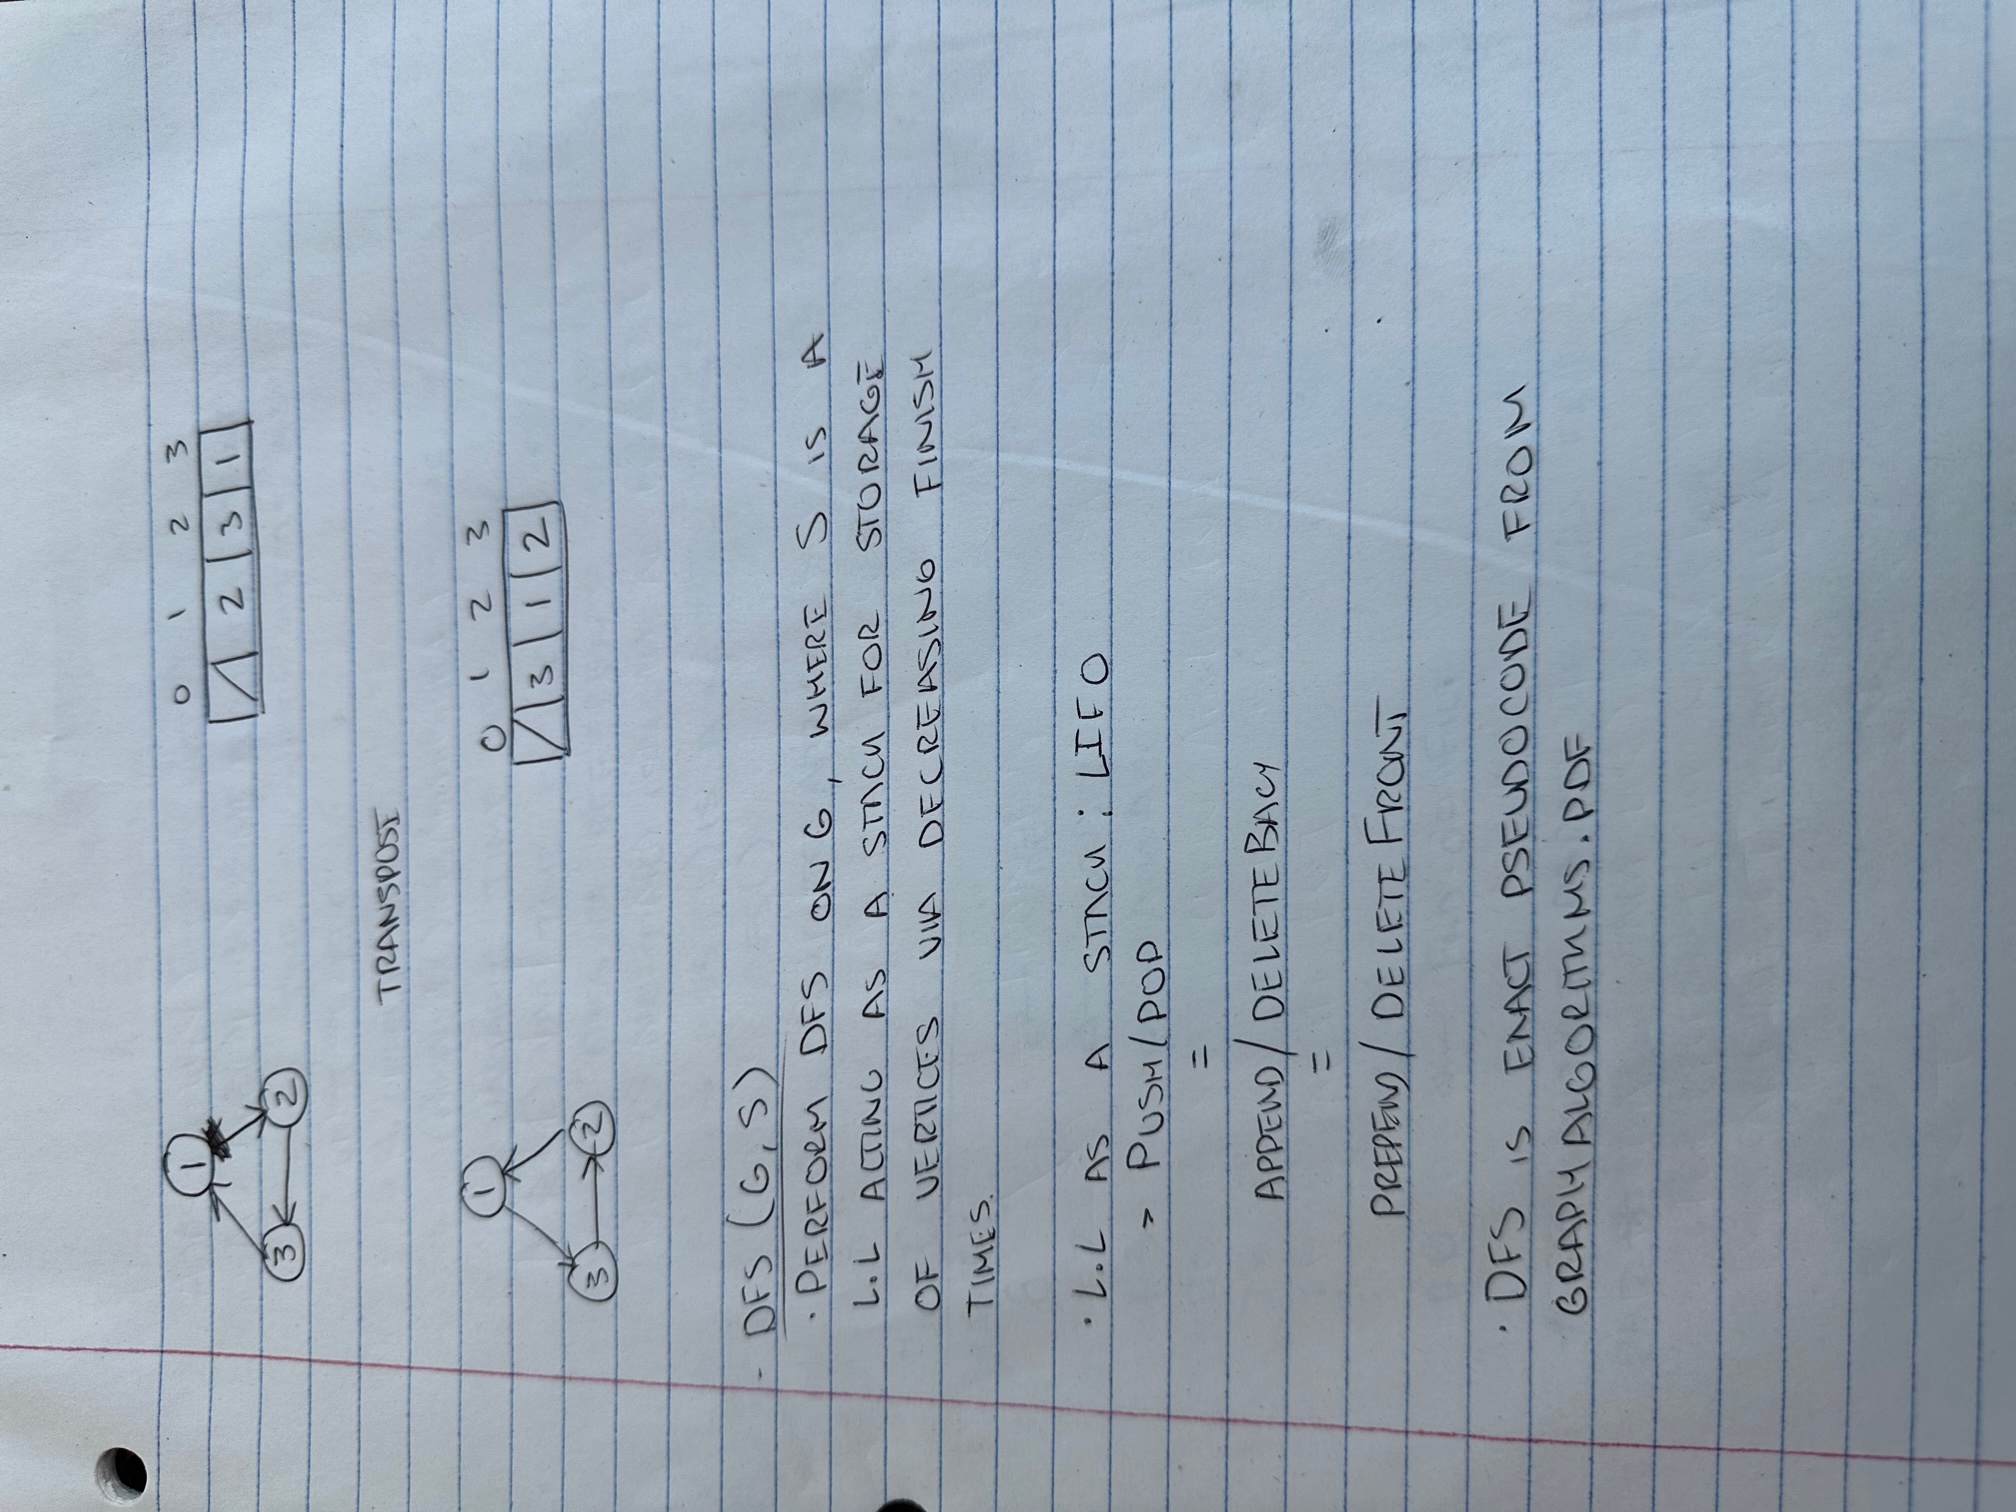 1
3 2
0 1 2 3
2 3 1
TRANSPOSE
1
3 2
0 1 2 3
3 1 2
- DFS (G, S)
· PERFORM DFS ON G, WHERE S IS A
L.L ACTING AS A STACK FOR STORAGE
OF VERTICES VIA DECREASING FINISH
TIMES.
· L.L AS A STACK : LIFO
> PUSH/POP
=
APPEND/DELETEBACK
=
PREPEND/DELETEFRONT
· DFS IS EXACT PSEUDOCODE FROM
GRAPHALGORITHMS.PDF